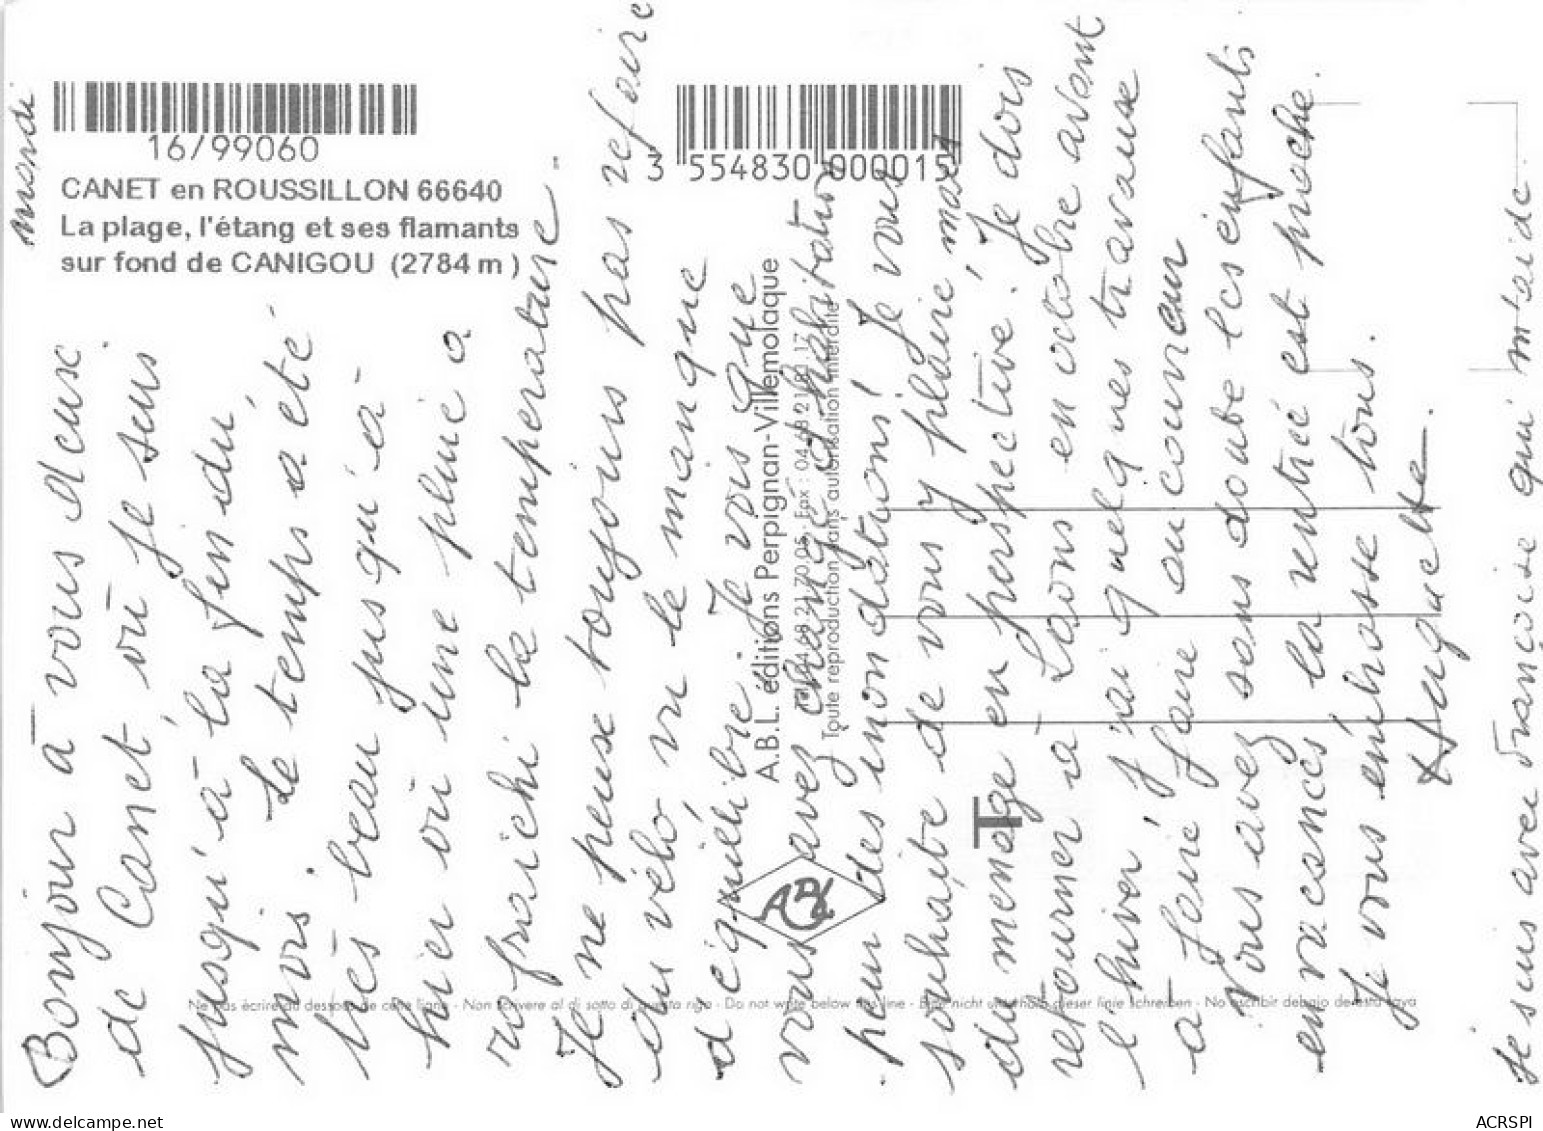 16/99060
CANET en ROUSSILLON 66640
La plage, l'étang et ses flamants
sur fond de CANIGOU (2784 m)
3 554830 000015
A.B.L. éditions Perpignan-Villemolaque
Tél. 04 68 21 70 05 - Fax : 04 68 21 80 17
Toute reproduction sans autorisation interdite
Ne pas écrire au dessous de cette ligne - Non scrivere al di sotto di questa riga - Do not write below this line - Bitte nicht unterhalb dieser linie schreiben - No escribir debajo de esta raya
mardi
Bonjour à vous deux
de Canet, où je suis
jusqu'à la fin du
mois. Le temps a été
très beau jusqu'à
hier où une pluie a
rafraichi la température.
Je ne peux toujours pas refaire
du vélo, vu le manque
d'équilibre. Je vois que
vous avez changé d'habitation
peur des inondations! Je vous
souhaite de vous y plaire, mais
du menage en perspective. Je dois
retourner à Laons en octobre avant
l'hiver, j'ai quelques travause
à faire faire au couvreur
Vous avez sans doute les enfants
en vacances la rentrée est proche.
Je vous embrasse tous.
Huguette
Je suis avec Françoise qui m'aide.
T
ACRSPI